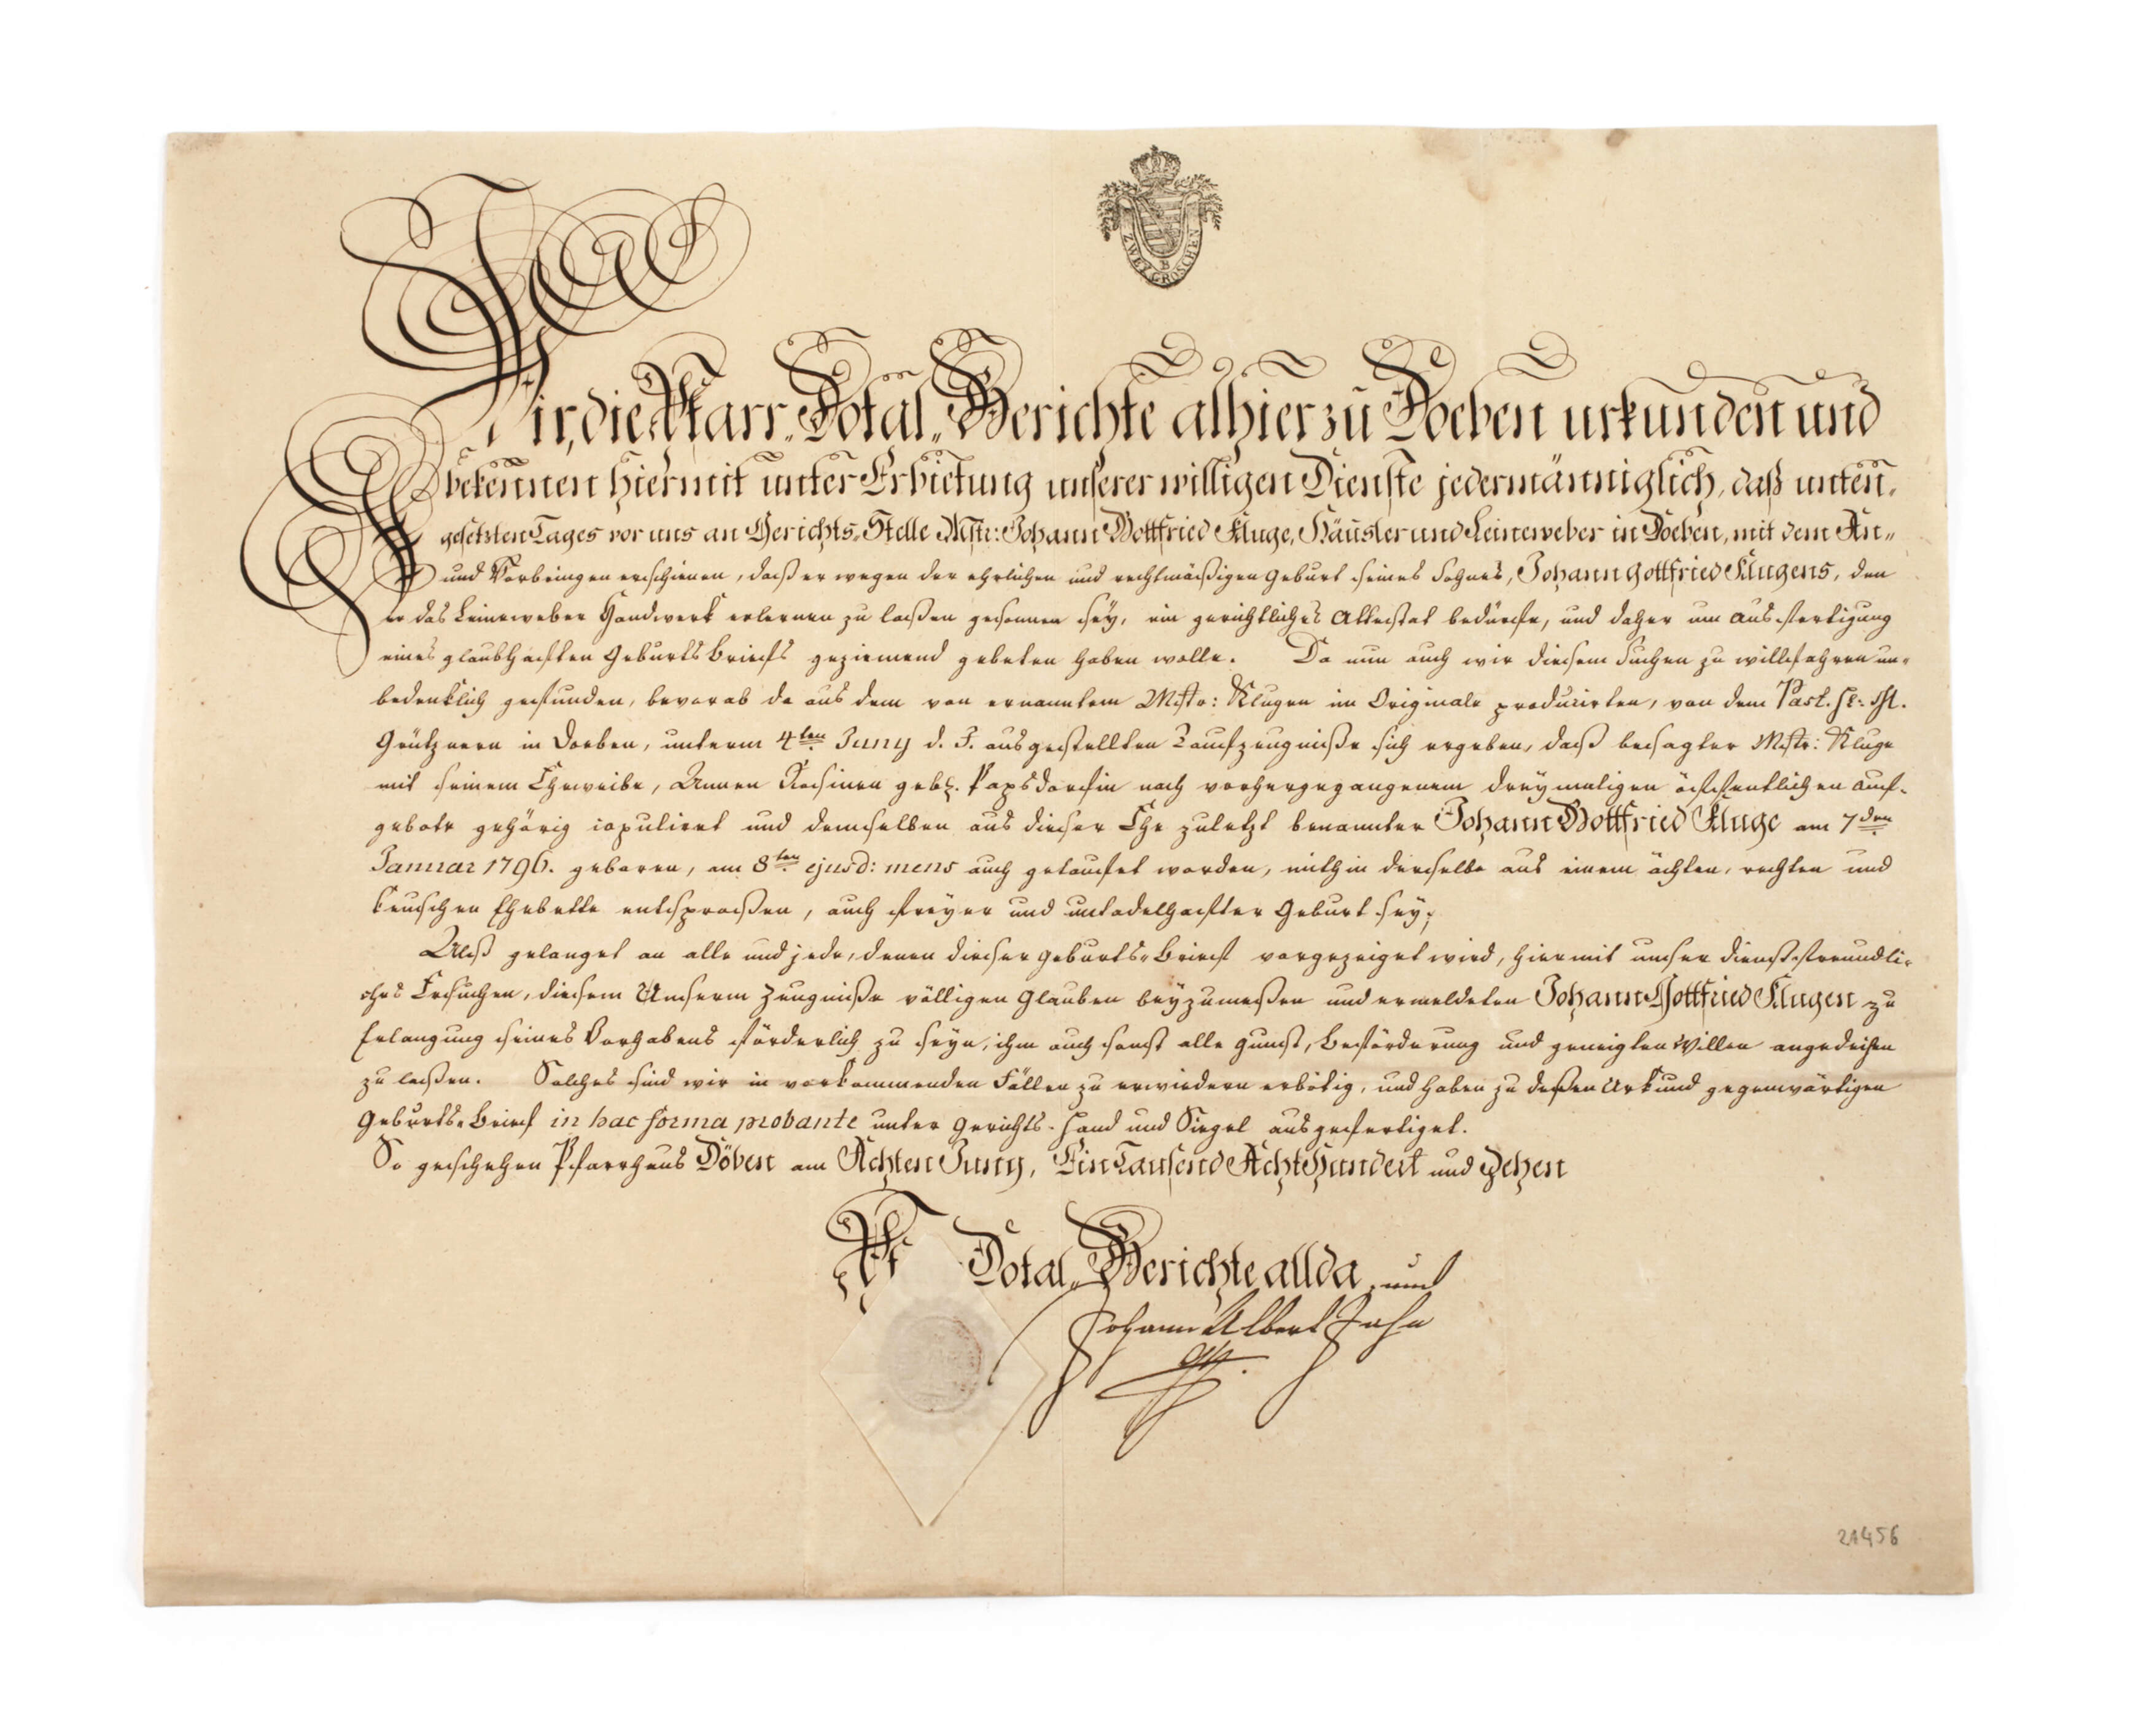 ZWEY GROSCHEN
B
Wir, die Pfarr„Dotal„Gerichte alhier zu Doeben urkunden und
bekennen hiermit unter Erbietung unserer willigen Dienste jedermänniglich, daß unten„
gesetzten Tages vor uns an Gerichts„Stelle Mstr: Johann Gottfried Kluge, Häusler und Leineweber in Doeben, mit dem An„
und Vorbringen erschienen, daß er wegen der ehrlichen und rechtmäßigen Geburt seines Sohnes, Johann Gottfried Klugens, den
er das Leineweber Handwerk erlernen zu laßen gesonnen sey, ein gerichtliches Attestat bedürfe, und daher um Ausfertigung
eines glaubhaften Geburts Briefs geziemend gebeten haben wolle. Da nun auch wir diesem Suchen zu willfahren un„
bedenklich gefunden, bevorab da aus dem von ernanntem Mstr: Klugen im Originale producirten, von dem Past. H:
Grütznern in Doeben, unterm 4ten Juny d. J. ausgestellten Taufzeugniße sich ergeben, daß besagter Mstr: Kluge
mit seinem Eheweibe, Annen Rosinen geb. Papsdorfin nach vorhergegangenem dreymaligen öffentlichen Auf„
gebote gehörig copuliret und demselben aus dieser Ehe zuletzt benannter Johann Gottfried Kluge am 7den
Januar 1796. geboren, am 8ten ejusd: mens auch getaufet worden, mithin derselbe aus einem ächten, rechten und
keuschen Ehebette entsproßen, auch freyer und untadelhafter Geburt sey;
Alß gelanget an alle und jede, denen dieser Geburts„Brief vorgezeiget wird, hiermit unser dienstfreundli„
ches Ersuchen, diesem Unserm Zeugniße völligen Glauben beyzumeßen und ermeldeten Johann Gottfried Klugen zu
Erlangung seines Vorhabens förderlich zu seyn, ihm auch sonst alle Gunst, Beförderung und geneigten Willen angedeihen
zu laßen. Solches sind wir in vorkommenden Fällen zu erwiedern erbötig, und haben zu deßen Urkund gegenwärtigen
Geburts„Brief in hac forma probante unter Gerichts„Hand und Siegel ausgefertiget.
So geschehen Pfarrhaus Döben am Achten Juny, Ein Tausend Acht Hundert und Zehen
Pf Dotal„Gerichte allda, und
Johann Albert Jahn
21456